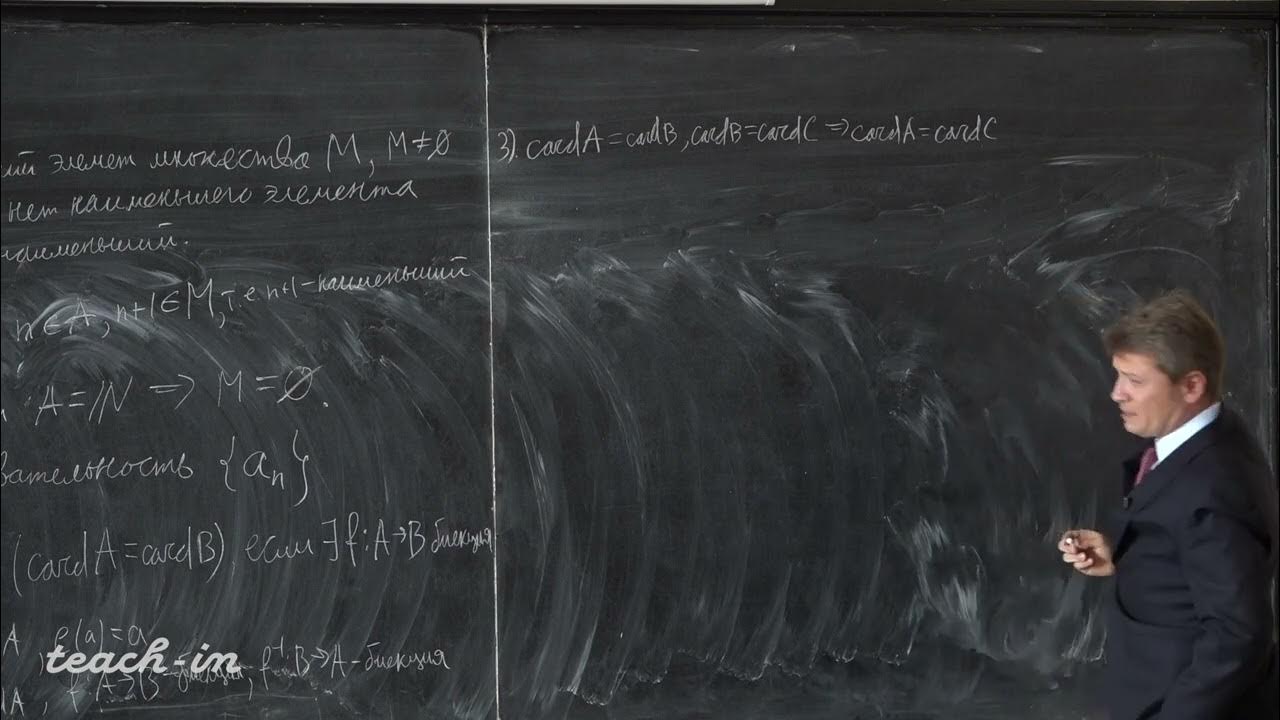 элемет множества M, M≠∅
нет наименьшего элемента
наименьший.
n∈A, n+1∈M, т.е. n+1 - наименьший
A=ℕ ⇒ M=∅.
{aₙ}
(cardA=cardB), если ∃f:A→B биекция
A, e(a)=a
f:A→B - биекция, f⁻¹:B→A - биекция
3). cardA=cardB, cardB=cardC ⇒ cardA=cardC
teach-in